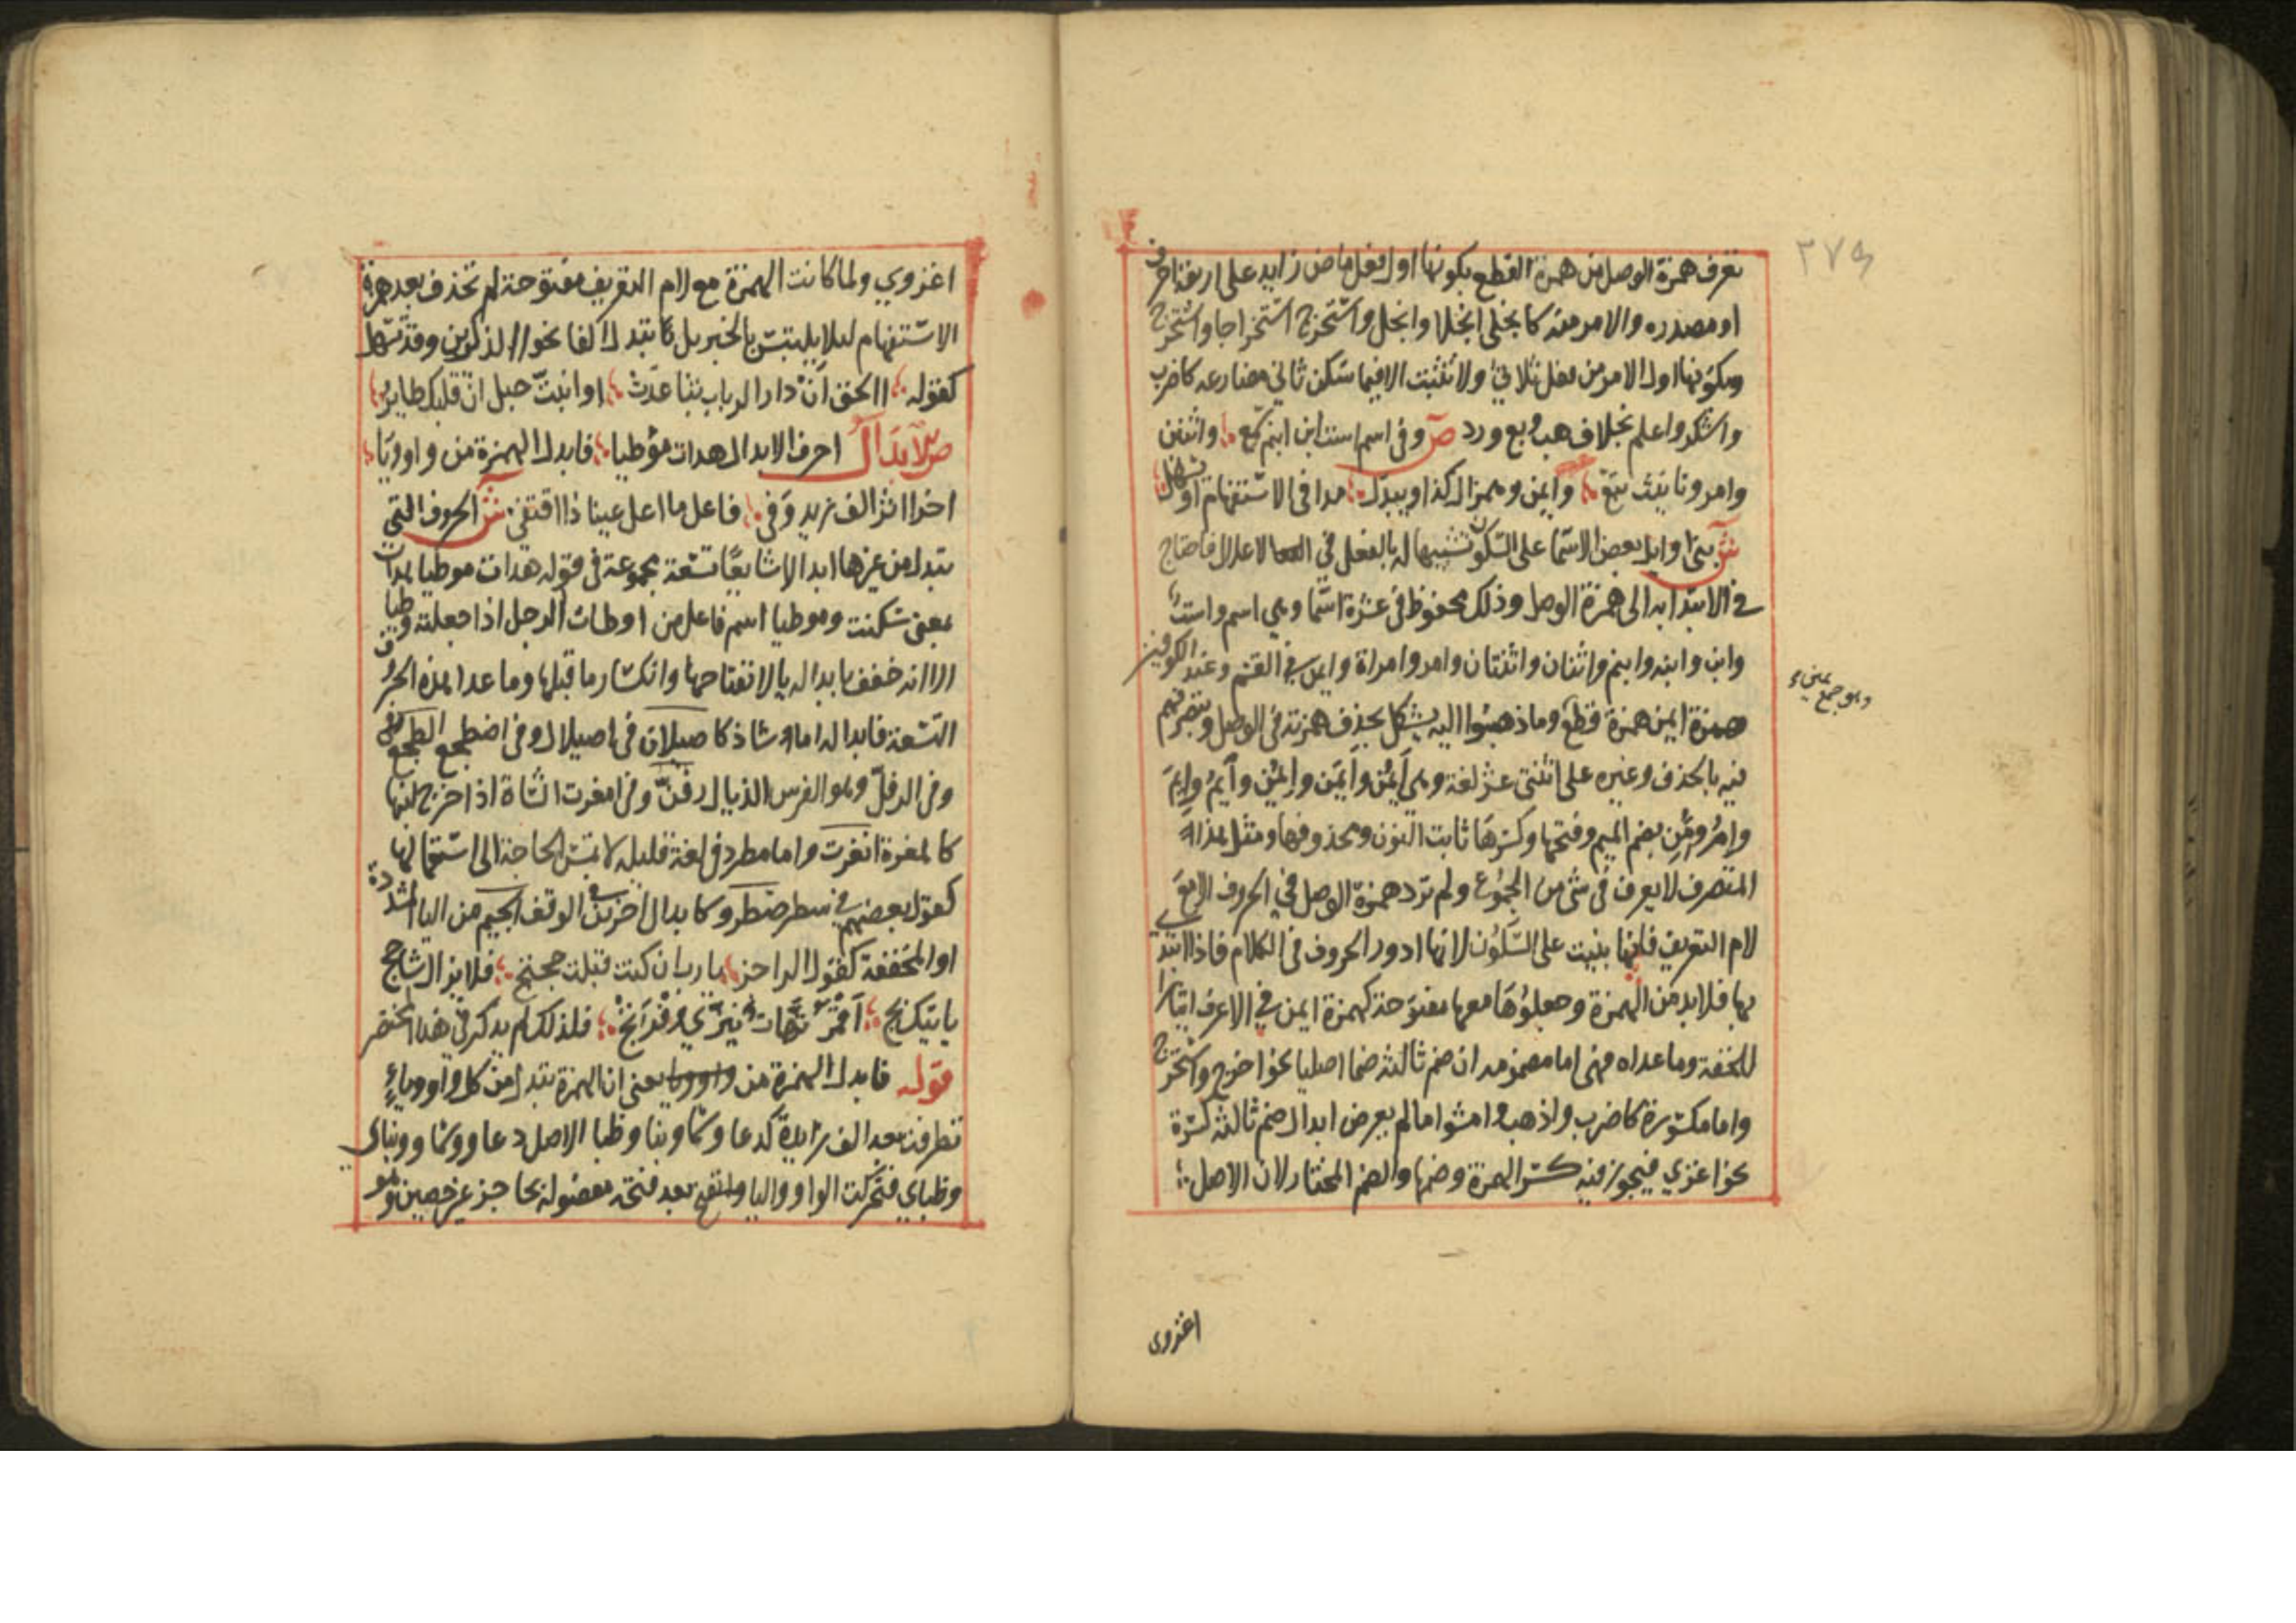 ٢٧٩
تعرف همزة الوصل من همزة القطع بكونها اول فعل ماض زايد على اربعة احرف
او مصدره والامر منه كانجلى انجلا وانجل واستخرج استخراجا واستخرج
وبكونها اول الامر من فعل ثلاثي ولا تثبت الا فيما سكن ثاني مضارعه كاضرب
واشكر واعلم بخلاف هب وبع ورد ص وفي اسم است ابن ابنم سمع واثنين
وامر وتانيث تبع وايمن وهمز ال كذا ويبدل مدا في الاستفهام او يسهل
ش بني اوايل بعض الاسما على السكون تشبيها له بالفعل في الاعلال فاحتاج
في الابتدا به الى همزة الوصل وذلك محفوظ في عشرة اسما وهي اسم واست
وابن وابنه وابنم واثنان واثنتان وامر وامراة وايمن في القسم وعند الكوفيين
وهو جمع يمين
همزة ايمن همزة قطع وما ذهبوا اليه يشكل بحذف همزته في الوصل وتصرفهم
فيه بالحذف وغيره على اثنتي عشر لغة وهي ايمن وايمن وايمن وايم وايم
وام ومن بضم الميم وفتحها وكسرها ثابت النون ومحذوفها ومثل هذا
المتصرف لا يعرف في شي من الجموع ولم ترد همزة الوصل في الحروف الا مع
لام التعريف فانها بنيت على السكون لانها ادور الحروف في الكلام فاذا ابتدي
بها فلا بد من الهمزة وجعلوها معها مفتوحة كهمزة ايمن في الاعرف ايثارا
للخفة وما عداه فهي اما مضمومه ان ضم ثالثه ضما اصليا نحو اخرج واستخرج
واما مكسورة كاضرب واذهب وامشوا ما لم يعرض ابدال ضم ثالثه كسرة
نحو اغزي فيجوز فيه كسر الهمزة وضمها والضم المختار لان الاصل
اغزوى
اغزوي ولما كانت الهمزة مع لام التعريف مفتوحة لم تحذف بعد همزة
الاستفهام ليلا يلتبس بالخبر بل تبدل الفا نحو الذكرين وقد تسهل
كقوله االحق ان دار الرباب تباعدت او انبت حبل ان قلبك طاير
ص الابدال احرف الابدال هدات موطيا فابدل الهمزة من واو ويا
اخرا اثر الف زيد وفي فاعل ما اعل عينا ذا اقتفي ش الحروف التي
تبدل من غيرها ابدالا شايعا تسعة مجموعة في قوله هدات موطيا هدات
بمعنى سكنت وموطيا اسم فاعل من اوطات الرجل اذا جعلته وطيا
الا انه خفف بابداله يا لانفتاحها وانكسار ما قبلها وما عدا هذه الحروف
التسعة فابداله اما شاذ كاصيلان في اصيلال وفي اضطجع الطجع
وفي الرفل وهو الفرس الذيال رفن وفي امغرت الشاة اذا خرج لبنها
كالمغرة انغرت واما مطرد في لغة قليله لا تمس الحاجة الى استعمالها
كقول بعضهم في سطر صطر وكابدال اخرين في الوقف الجيم من اليا المشددة
او المخففة كقول الراجز يا رب ان كنت قبلت حجتج فلا يزال شاحج
ياتيك بج اقمر نهات ينزي وفرتج فلذلك لم يذكر في هذا المختصر
قوله فابدل الهمزة من واو ويا يعني ان الهمزة تبدل من كل واو وياء
تطرفت بعد الف زايدة كدعا وسما وبنا وظبا الاصل دعاو وسماو وبناي
وظباي فتحركت الواو واليا وانفتح بعد فتحه مفصولة بحاجز غير حصين وهو